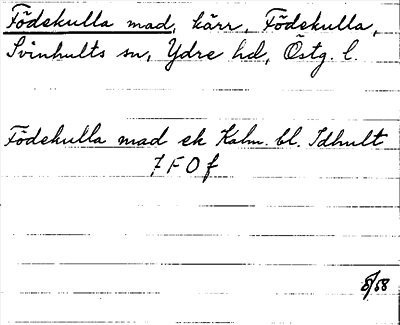 Födekulla mad, kärr, Födekulla,
Svinhults sn, Ydre hd, Östg. l.
Födekulla mad ek Kalm. bl. Idhult
7 F 0 f
8/58